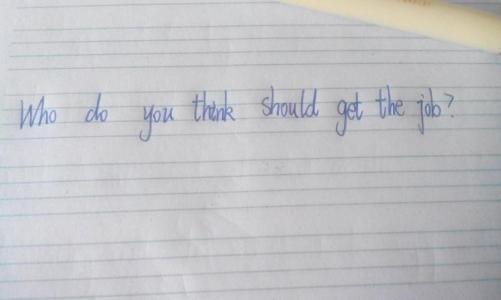 Who do you think should get the job?